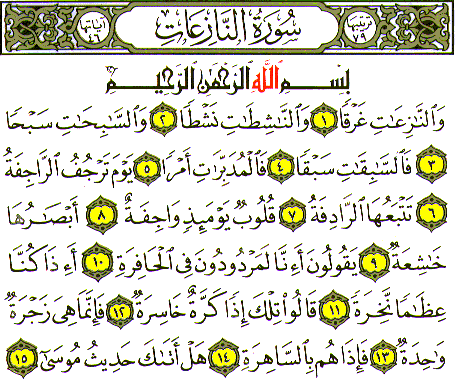 ترتيبها ٧٩ سُورَةُ النَّازِعَاتِ آياتها ٤٦
بِسْمِ اللَّهِ الرَّحْمَٰنِ الرَّحِيمِ
وَالنَّازِعَاتِ غَرْقًا ١ وَالنَّاشِطَاتِ نَشْطًا ٢ وَالسَّابِحَاتِ سَبْحًا
٣ فَالسَّابِقَاتِ سَبْقًا ٤ فَالْمُدَبِّرَاتِ أَمْرًا ٥ يَوْمَ تَرْجُفُ الرَّاجِفَةُ
٦ تَتْبَعُهَا الرَّادِفَةُ ٧ قُلُوبٌ يَوْمَئِذٍ وَاجِفَةٌ ٨ أَبْصَارُهَا
خَاشِعَةٌ ٩ يَقُولُونَ أَءِنَّا لَمَرْدُودُونَ فِي الْحَافِرَةِ ١٠ أَءِذَا كُنَّا
عِظَامًا نَّخِرَةً ١١ قَالُوا تِلْكَ إِذًا كَرَّةٌ خَاسِرَةٌ ١٢ فَإِنَّمَا هِيَ زَجْرَةٌ
وَاحِدَةٌ ١٣ فَإِذَا هُم بِالسَّاهِرَةِ ١٤ هَلْ أَتَىٰكَ حَدِيثُ مُوسَىٰٓ ١٥